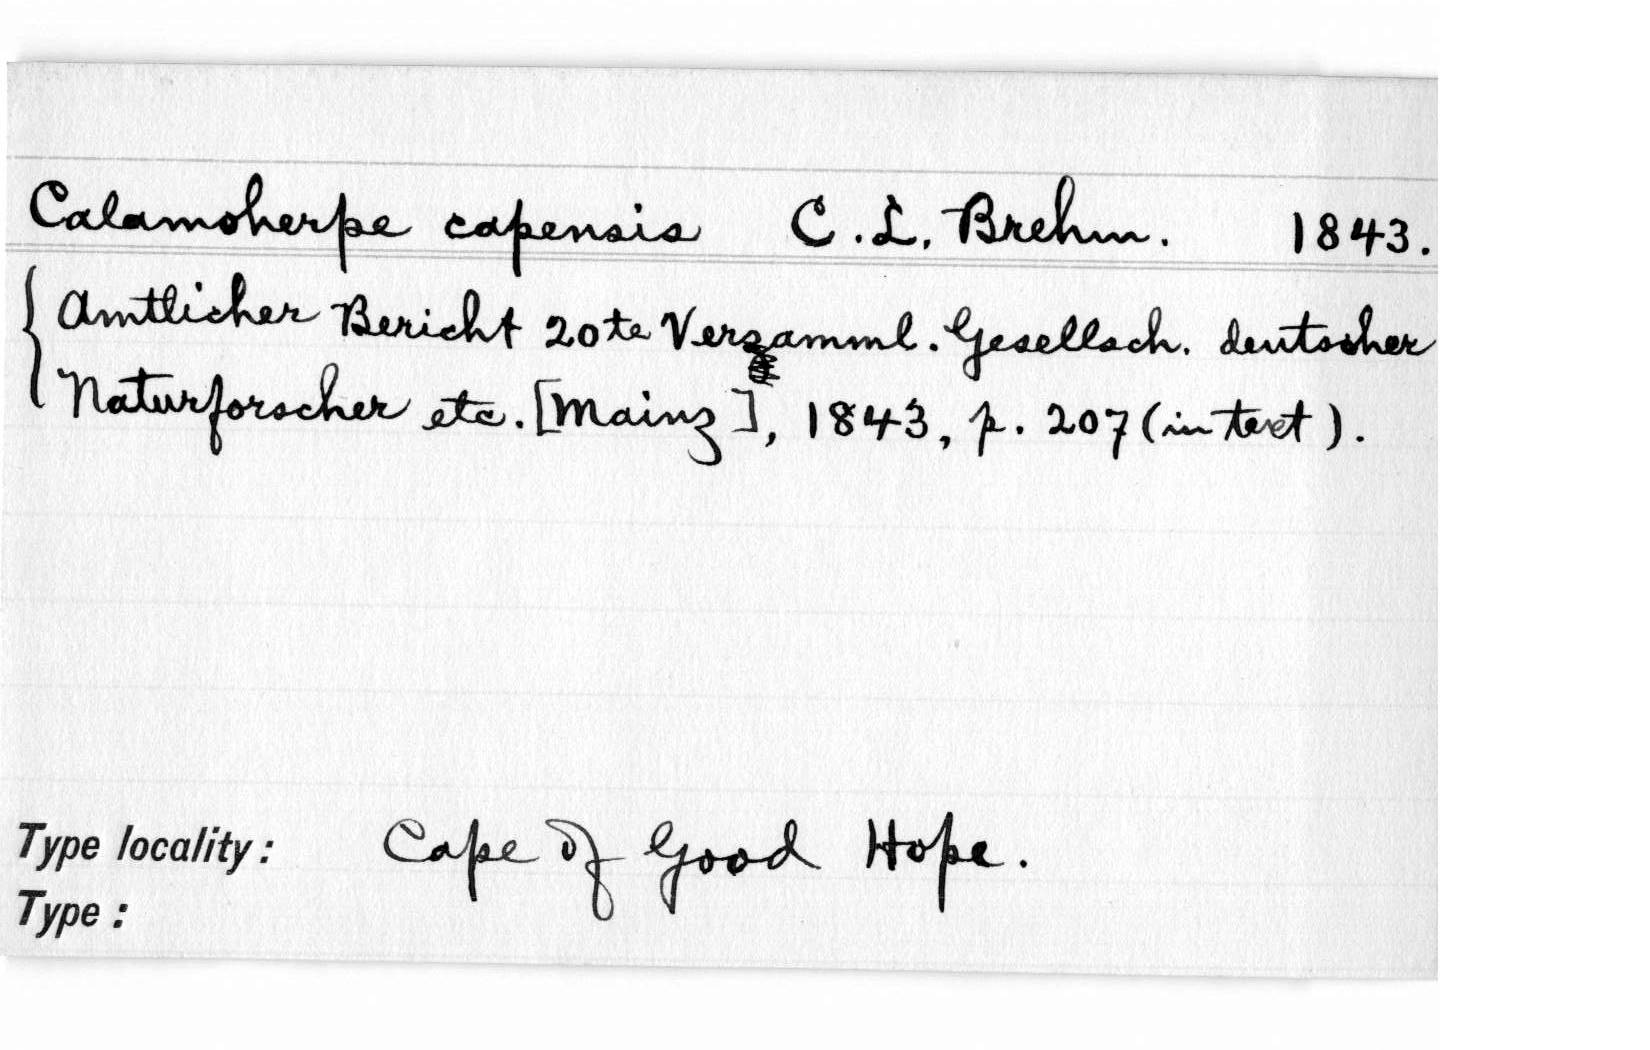 Calamoherpe capensis C. L. Brehm. 1843.
Amtlicher Bericht 20te Versamml. Gesellsch. deutscher
Naturforscher etc. [Mainz], 1843, p. 207 (in text).
Type locality: Cape of Good Hope.
Type: